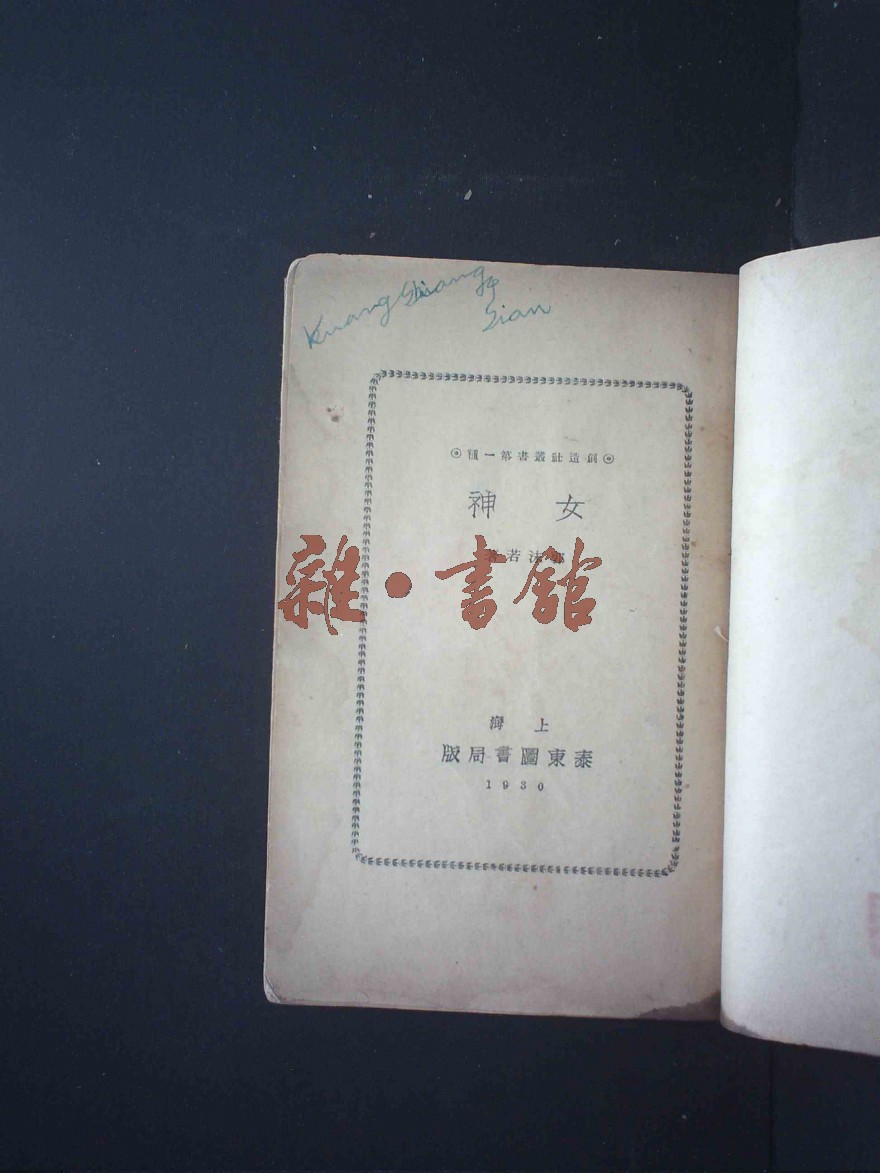 Kuang Shiang
Sian
◎創造社叢書第一種◎
女神
郭沫若著
雜·書館
上海
泰東圖書局版
1930